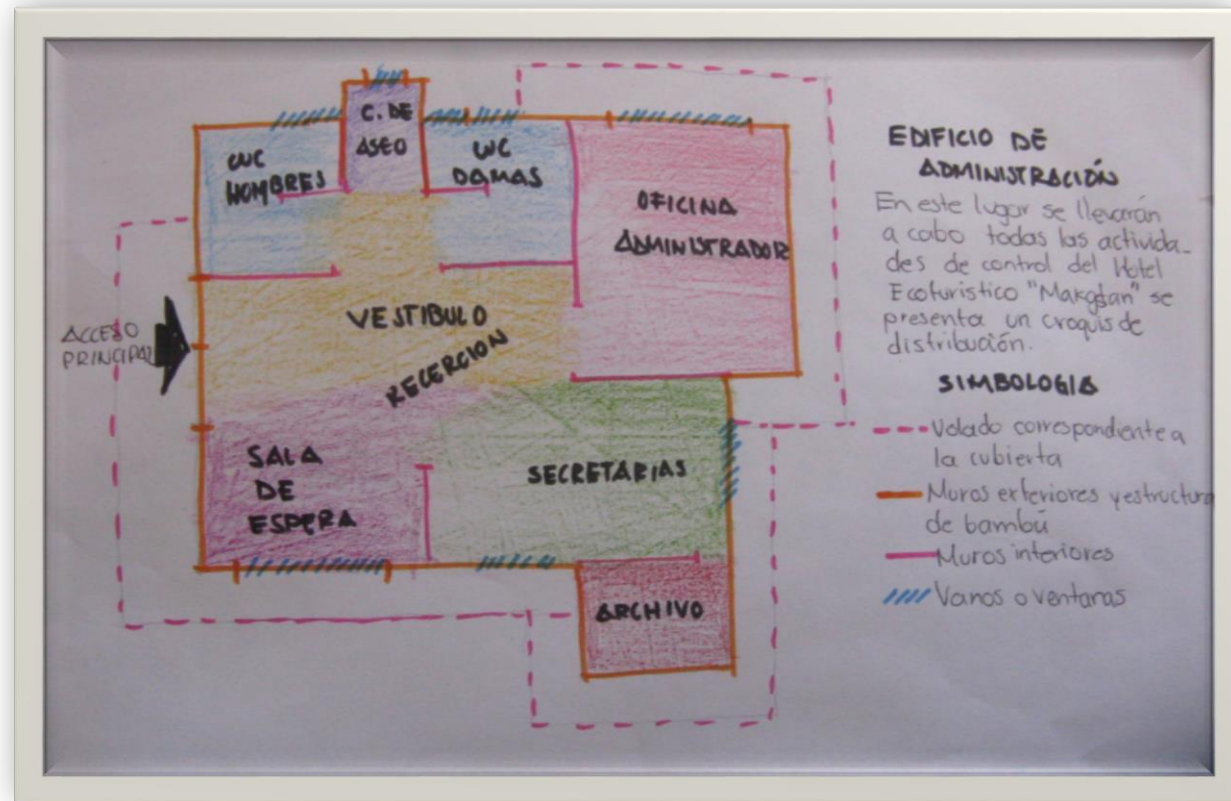 C. DE
ASEO
WC
HOMBRES
WC
DAMAS
OFICINA
ADMINISTRADOR
VESTIBULO
RECERCION
ACCESO
PRINCIPAL
SALA
DE
ESPERA
SECRETARIAS
ARCHIVO
EDIFICIO DE
ADMINISTRACIÓN
En este lugar se llevarán
a cabo todas las activida-
des de control del Hotel
Ecoturistico "Makgtan" se
presenta un croquis de
distribución.
SIMBOLOGIA
Volado correspondiente a
la cubierta
Muros exteriores y estructura
de bambú
Muros interiores
Vanos o ventanas